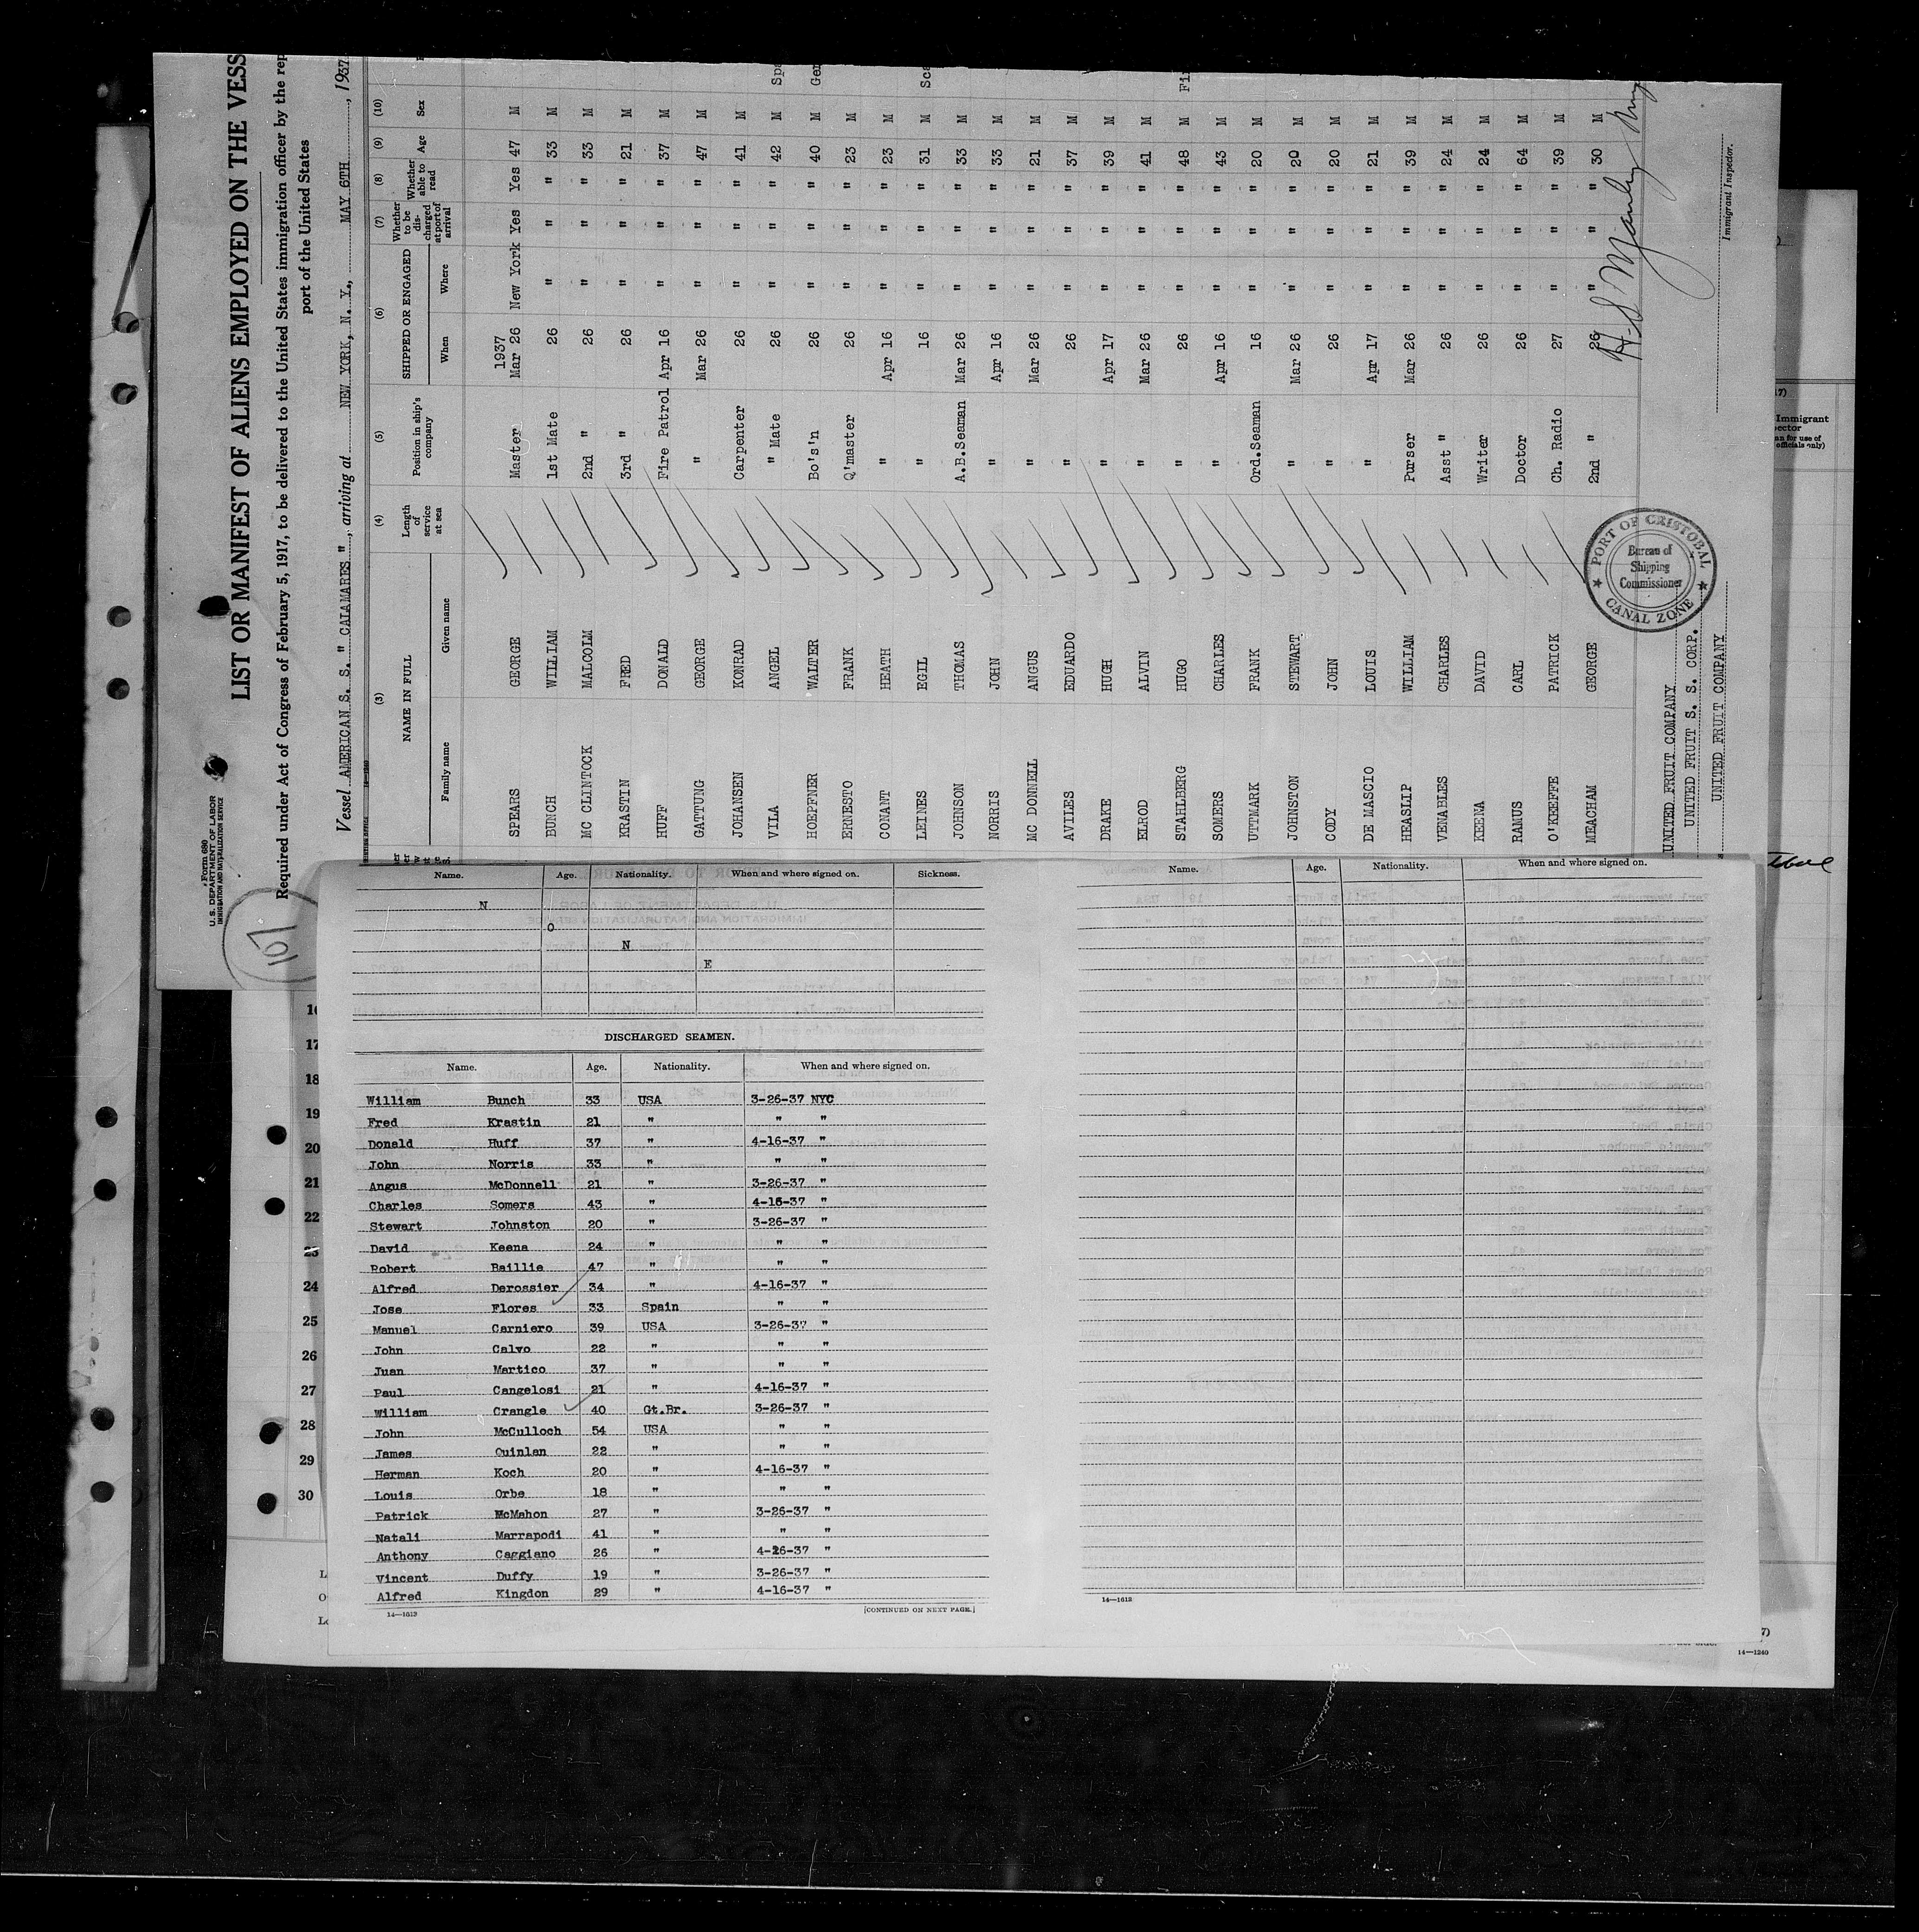 Form 680
U.S. DEPARTMENT OF LABOR
IMMIGRATION AND NATURALIZATION SERVICE
LIST OR MANIFEST OF ALIENS EMPLOYED ON THE VESS
Required under Act of Congress of February 5, 1917, to be delivered to the United States immigration officer by the rep
port of the United States
Vessel AMERICAN S. S. " CALAMARES ", arriving at NEW YORK, N. Y., MAY 6TH, 1937
(3) (4) (5) (6) (7) (8) (9) (10)
NAME IN FULL Length of service at sea Position in ship's company SHIPPED OR ENGAGED Whether to be discharged at port of arrival Whether able to read Age Sex
Family name Given name When Where
1937
SPEARS GEORGE Master Mar 26 New York Yes Yes 47 M
BUNCH WILLIAM 1st Mate 26 " " " 33 M
MC CLINTOCK MALCOLM 2nd " 26 " " " 33 M
KRASTIN FRED 3rd " 26 " " " 21 M
HUFF DONALD Fire Patrol Apr 16 " " " 37 M
GATTUNG GEORGE " Mar 26 " " " 47 M
JOHANSEN KONRAD Carpenter 26 " " " 41 M
VILA ANGEL " Mate 26 " " " 42 M Spa
HOEPFNER WALTER Bo's'n 26 " " " 40 M Ger
ERNESTO FRANK Q'master 26 " " " 23 M
CONANT HEATH " Apr 16 " " " 23 M
LEINES EGIL " 16 " " " 31 M Sca
JOHNSON THOMAS A.B.Seaman Mar 26 " " " 33 M
NORRIS JOHN " Apr 16 " " " 33 M
MC DONNELL ANGUS " Mar 26 " " " 21 M
AVILES EDUARDO " 26 " " " 37 M
DRAKE HUGH " Apr 17 " " " 39 M
ELROD ALVIN " Mar 26 " " " 41 M
STAHLBERG HUGO " 26 " " " 48 M Fi
SOMERS CHARLES " Apr 16 " " " 43 M
UTTMARK FRANK Ord.Seaman 16 " " " 20 M
JOHNSTON STEWART " Mar 26 " " " 20 M
CODY JOHN " 26 " " " 20 M
DE MASCIO LOUIS " Apr 17 " " " 21 M
HEASLIP WILLIAM Purser Mar 26 " " " 39 M
VENABLES CHARLES Asst " 26 " " " 24 M
KEENA DAVID Writer 26 " " " 24 M
RAMUS CARL Doctor 26 " " " 64 M
O'KEEFFE PATRICK Ch. Radio 27 " " " 39 M
MEACHAM GEORGE 2nd " 26 " " " 30 M
UNITED FRUIT COMPANY
UNITED FRUIT S. S. CORP.
UNITED FRUIT COMPANY
PORT OF CRISTOBAL
Bureau of
Shipping
Commissioner
CANAL ZONE
Immigrant Inspector.
107
Name. Age. Nationality. When and where signed on. Sickness.
N
O
N
E
DISCHARGED SEAMEN.
Name. Age. Nationality. When and where signed on.
William Bunch 33 USA 3-26-37 NYC
Fred Krastin 21 " " "
Donald Huff 37 " 4-16-37 "
John Norris 33 " " "
Angus McDonnell 21 " 3-26-37 "
Charles Somers 43 " 4-16-37 "
Stewart Johnston 20 " 3-26-37 "
David Keena 24 " " "
Robert Baillie 47 " " "
Alfred Derossier 34 " 4-16-37 "
Jose Flores 33 Spain " "
Manuel Carniero 39 USA 3-26-37 "
John Calvo 22 " " "
Juan Martico 37 " " "
Paul Cangelosi 21 " 4-16-37 "
William Crangle 40 Gt.Br. 3-26-37 "
John McCulloch 54 USA " "
James Quinlan 22 " " "
Herman Koch 20 " 4-16-37 "
Louis Orbe 18 " " "
Patrick McMahon 27 " 3-26-37 "
Natali Marrapodi 41 " " "
Anthony Caggiano 26 " 4-26-37 "
Vincent Duffy 19 " 3-26-37 "
Alfred Kingdon 29 " 4-16-37 "
14—1613 [CONTINUED ON NEXT PAGE.]
Name. Age. Nationality. When and where signed on.
14—1613
16
17
18
19
20
21
22
23
24
25
26
27
28
29
30
14—1240